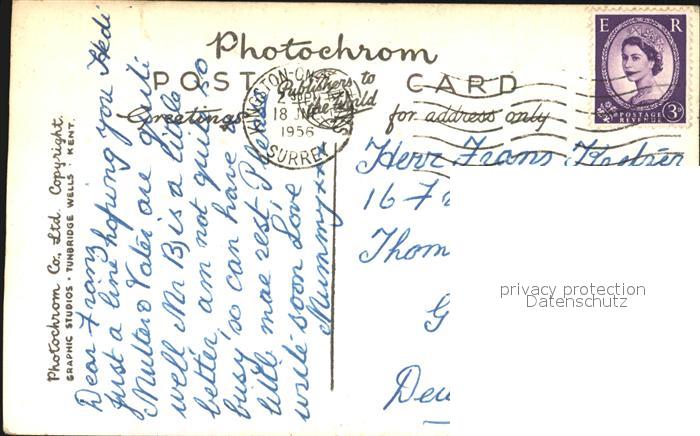 Photochrom
POST CARD
Publishers to
the World
Greetings
for address only
E R
POSTAGE
REVENUE
3D
KINGSTON-ON-
18 JU
1956
SURREY
Photochrom Co., Ltd. Copyright.
GRAPHIC STUDIOS · TUNBRIDGE WELLS · KENT.
Dear Franz
just a line hoping you Hedi
Mutter & Vater are quiti
well Mr B, is a little
better, am not quite so
busy, so can have a
little mae rest, Please
write soon Love
Mummy xx
Herr Frans
16
Thom
G
Deu
privacy protection
Datenschutz